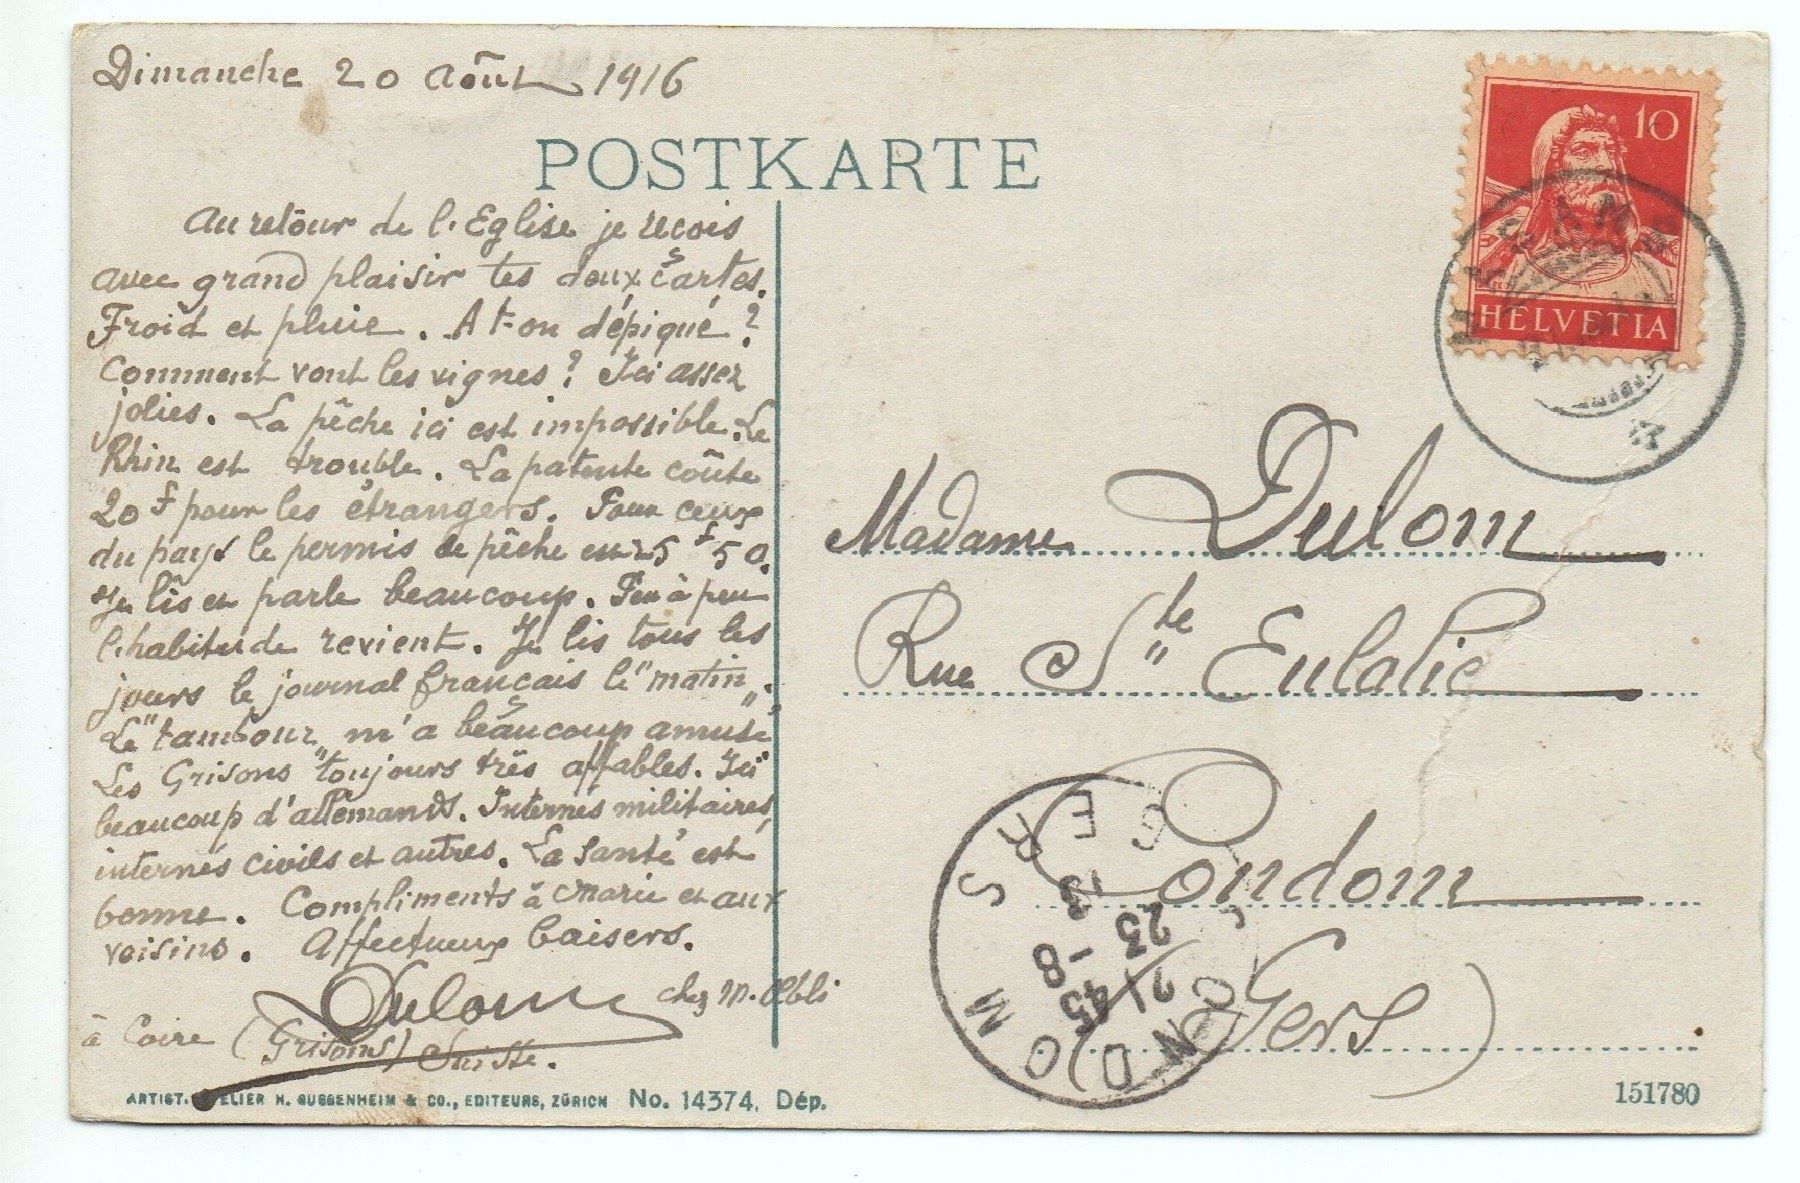 Dimanche 20 Août 1916
POSTKARTE
Au retour de l'Eglise je reçois
avec grand plaisir tes deux cartes.
Froid et pluie. A t-on dépiqué?
Comment vont les vignes? Ici assez
jolies. La pêche ici est impossible. Le
Rhin est trouble. La patente coûte
20 f pour les étrangers. Pour ceux
du pays le permis de pêche est 5 f 50.
Je lis et parle beaucoup. Peu à peu
l'habitude revient. Je lis tous les
jours le journal français le "matin".
Le "tambour" m'a beaucoup amusé
Les Grisons toujours très affables. Ici
beaucoup d'allemands. Internés militaires,
internés civils et autres. La santé est
bonne. Compliments à Marie et aux
voisins. Affectueux baisers.
Dulom chez M. Abli
à Coire (Grisons) Suisse.
ARTIST. ATELIER H. GUGGENHEIM & CO., EDITEURS, ZÜRICH No. 14374. Dép.
10
HELVETIA
Madame Dulom
Rue Ste Eulalie
Condom
(Gers)
CONDOM
GERS
151780